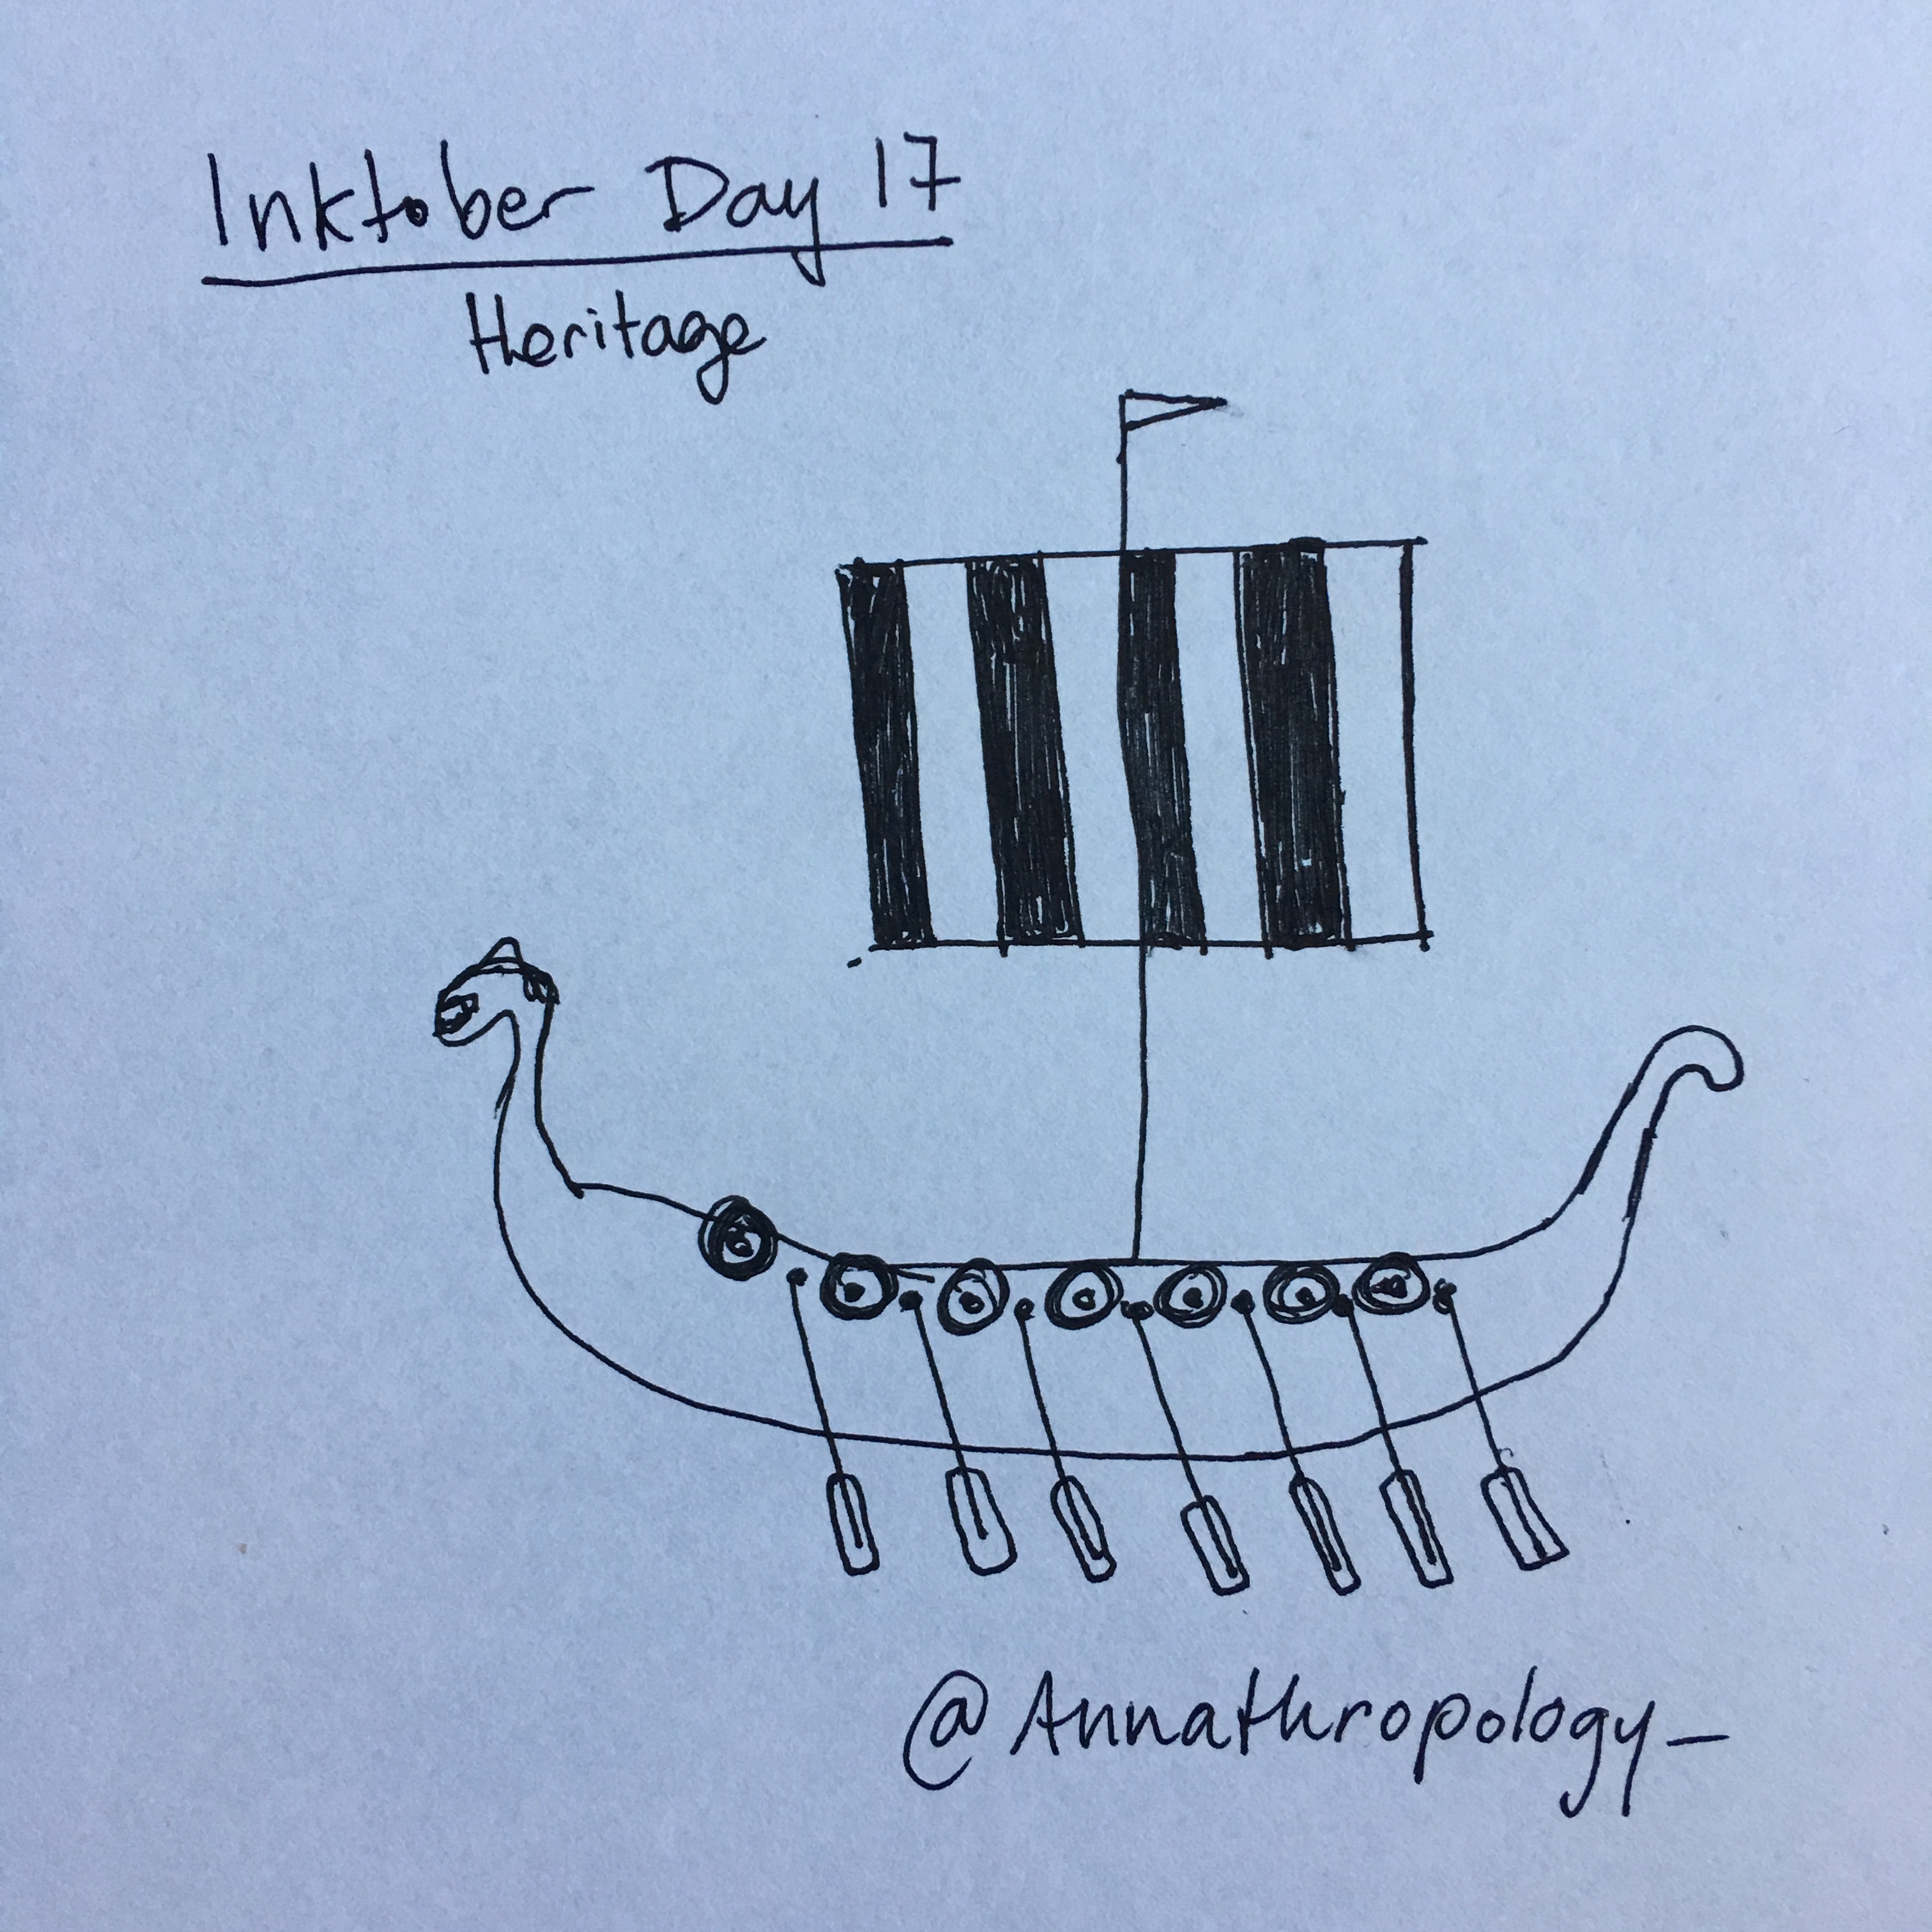 Inktober Day 17
Heritage
@Annathropology_